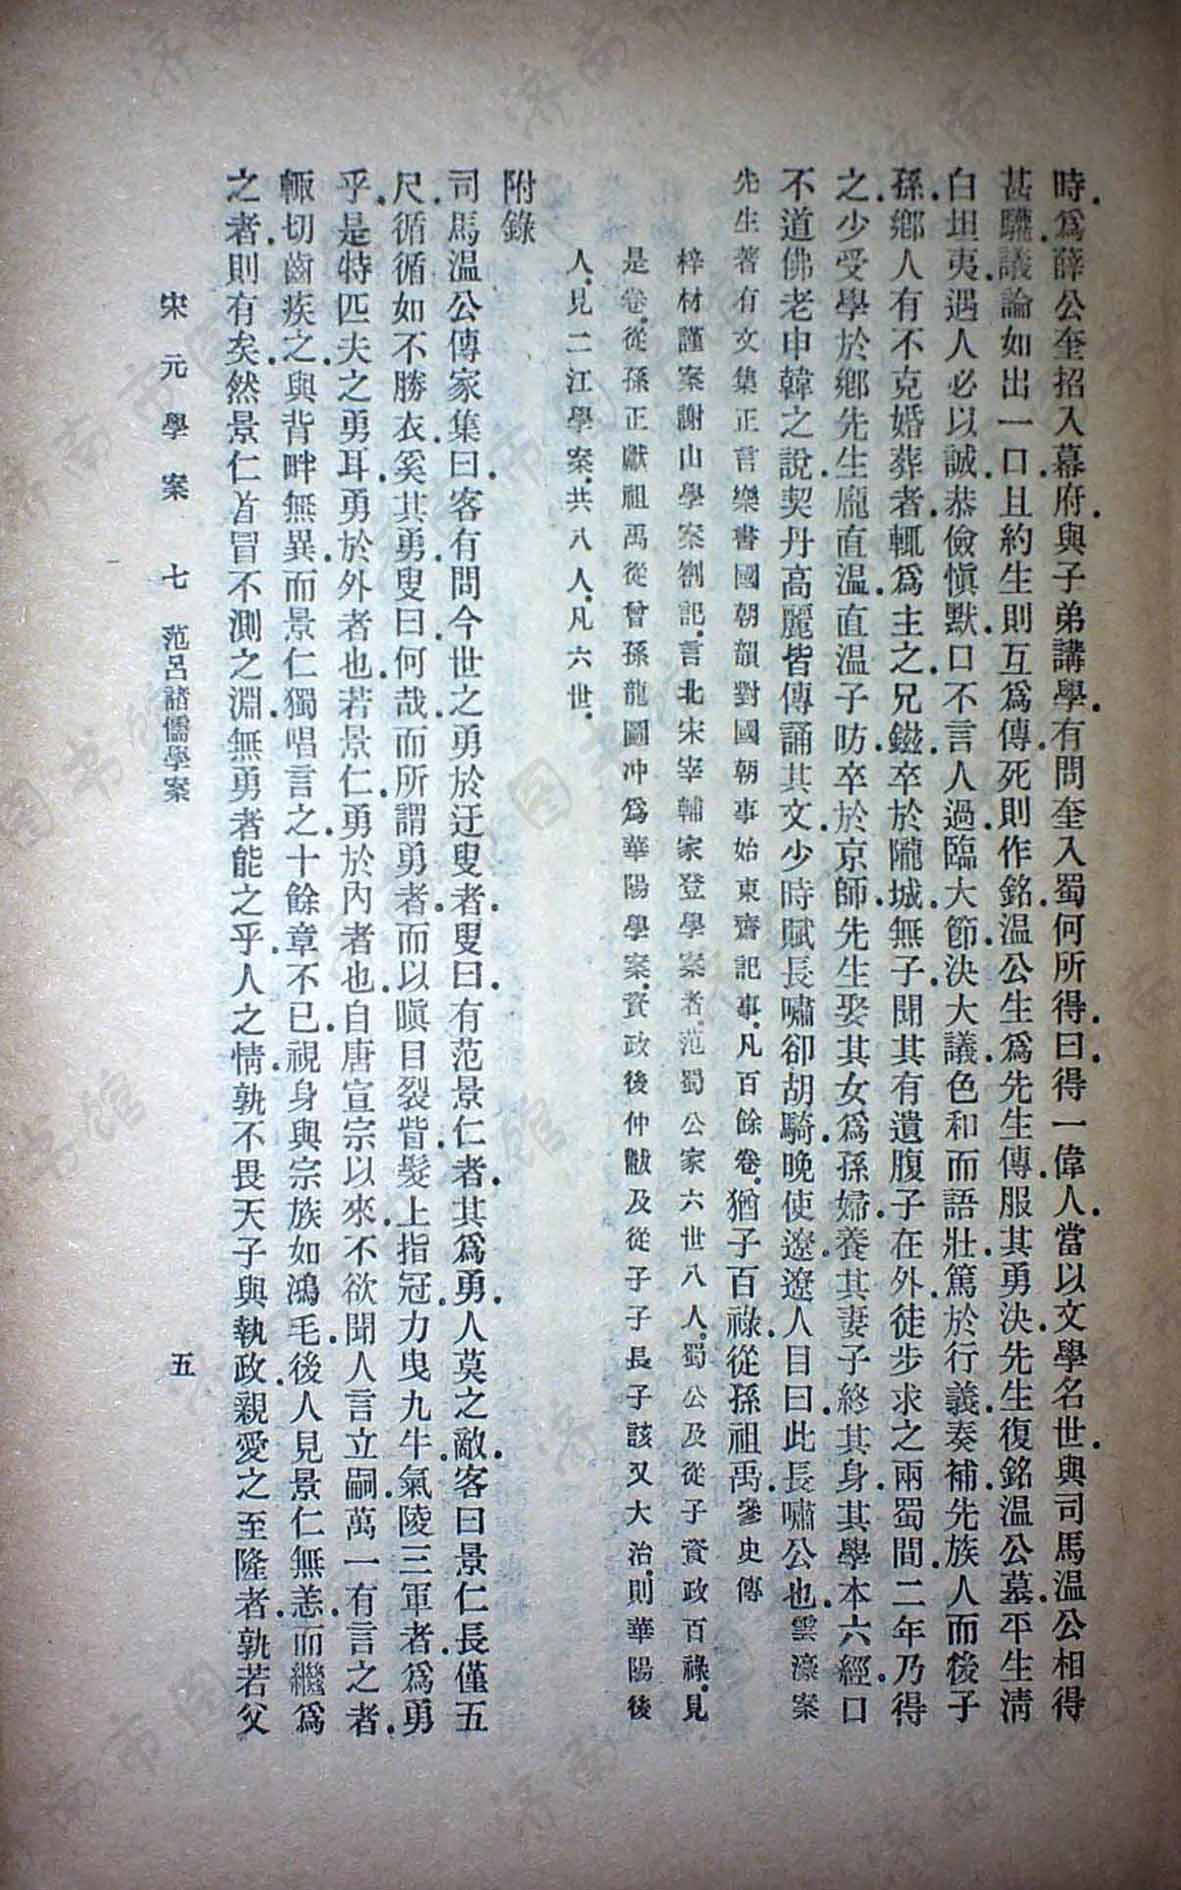 時.爲薛公奎招入幕府.與子弟講學.有問奎入蜀何所得.曰.得一偉人.當以文學名世.與司馬溫公相得
甚驩.議論如出一口.且約生則互爲傳.死則作銘.溫公生爲先生傳.服其勇決.先生復銘溫公墓.平生淸
白坦夷.遇人必以誠.恭儉愼默.口不言人過.臨大節.決大議.色和而語壯.篤於行義.奏補先族人而後子
孫.鄉人有不克婚葬者.輒爲主之.兄鎡.卒於隴城.無子.聞其有遺腹子在外.徒步求之兩蜀間.二年乃得
之.少受學於鄉先生龐直溫.直溫子昉.卒於京師.先生娶其女爲孫婦.養其妻子終其身.其學本六經.口
不道佛老申韓之說.契丹高麗皆傳誦其文.少時賦長嘯卻胡騎.晚使遼.遼人目曰.此長嘯公也.雲濠案
先生著有文集正言樂書國朝韻對國朝事始東齋記事.凡百餘卷.猶子百祿.從孫祖禹.參史傳
梓材謹案謝山學案劄記.言北宋宰輔家登學案者.范蜀公家六世八人.蜀公及從子資政百祿.見
是卷.從孫正獻祖禹從曾孫龍圖冲爲華陽學案.資政後仲黻及從子子長子該又大治.則華陽後
人.見二江學案.共八人.凡六世.
附錄
司馬溫公傳家集曰.客有問今世之勇於迂叟者.叟曰.有范景仁者.其爲勇.人莫之敵.客曰.景仁長僅五
尺.循循如不勝衣.奚其勇.叟曰.何哉.而所謂勇者.而以瞋目裂眥.髮上指冠.力曳九牛.氣陵三軍者.爲勇
乎.是特匹夫之勇耳.勇於外者也.若景仁.勇於內者也.自唐宣宗以來.不欲聞人言立嗣.萬一有言之者.
輒切齒疾之.與背畔無異.而景仁獨唱言之.十餘章不已.視身與宗族如鴻毛.後人見景仁無恙.而繼爲
之者.則有矣.然景仁首冒不測之淵.無勇者能之乎.人之情.孰不畏天子與執政.親愛之至隆者.孰若父
宋元學案 七 范呂諸儒學案 五